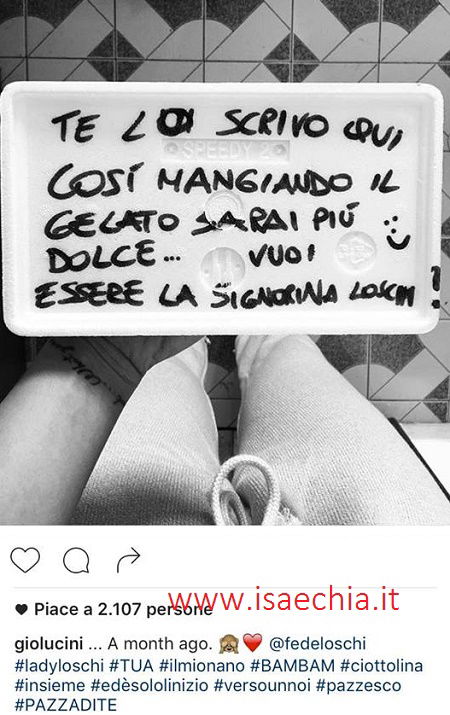 TE LO SCRIVO QUI
SPEEDY 2
COSÍ MANGIANDO IL
GELATO SARAI PIÚ
DOLCE... VUOI
ESSERE LA SIGNORINA LOSCHI ?
Piace a 2.107 persone
www.isaechia.it
giolucini ... A month ago. 🙈❤️ @fedeloschi
#ladyloschi #TUA #ilmionano #BAMBAM #ciottolina
#insieme #edèsololinizio #versounnoi #pazzesco
#PAZZADITE